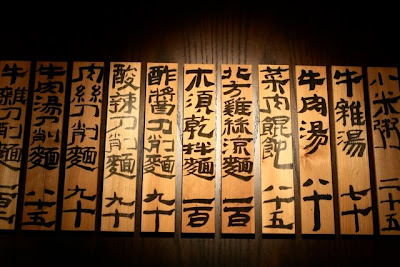 小米粥二十五
牛雜湯七十
牛肉湯八十
菜肉餛飩八十五
北方雞絲涼麵一百
木須乾拌麵一百
酢醬刀削麵九十
酸辣刀削麵九十
肉絲刀削麵九十
牛肉湯刀削麵八十五
牛雜刀削麵一百